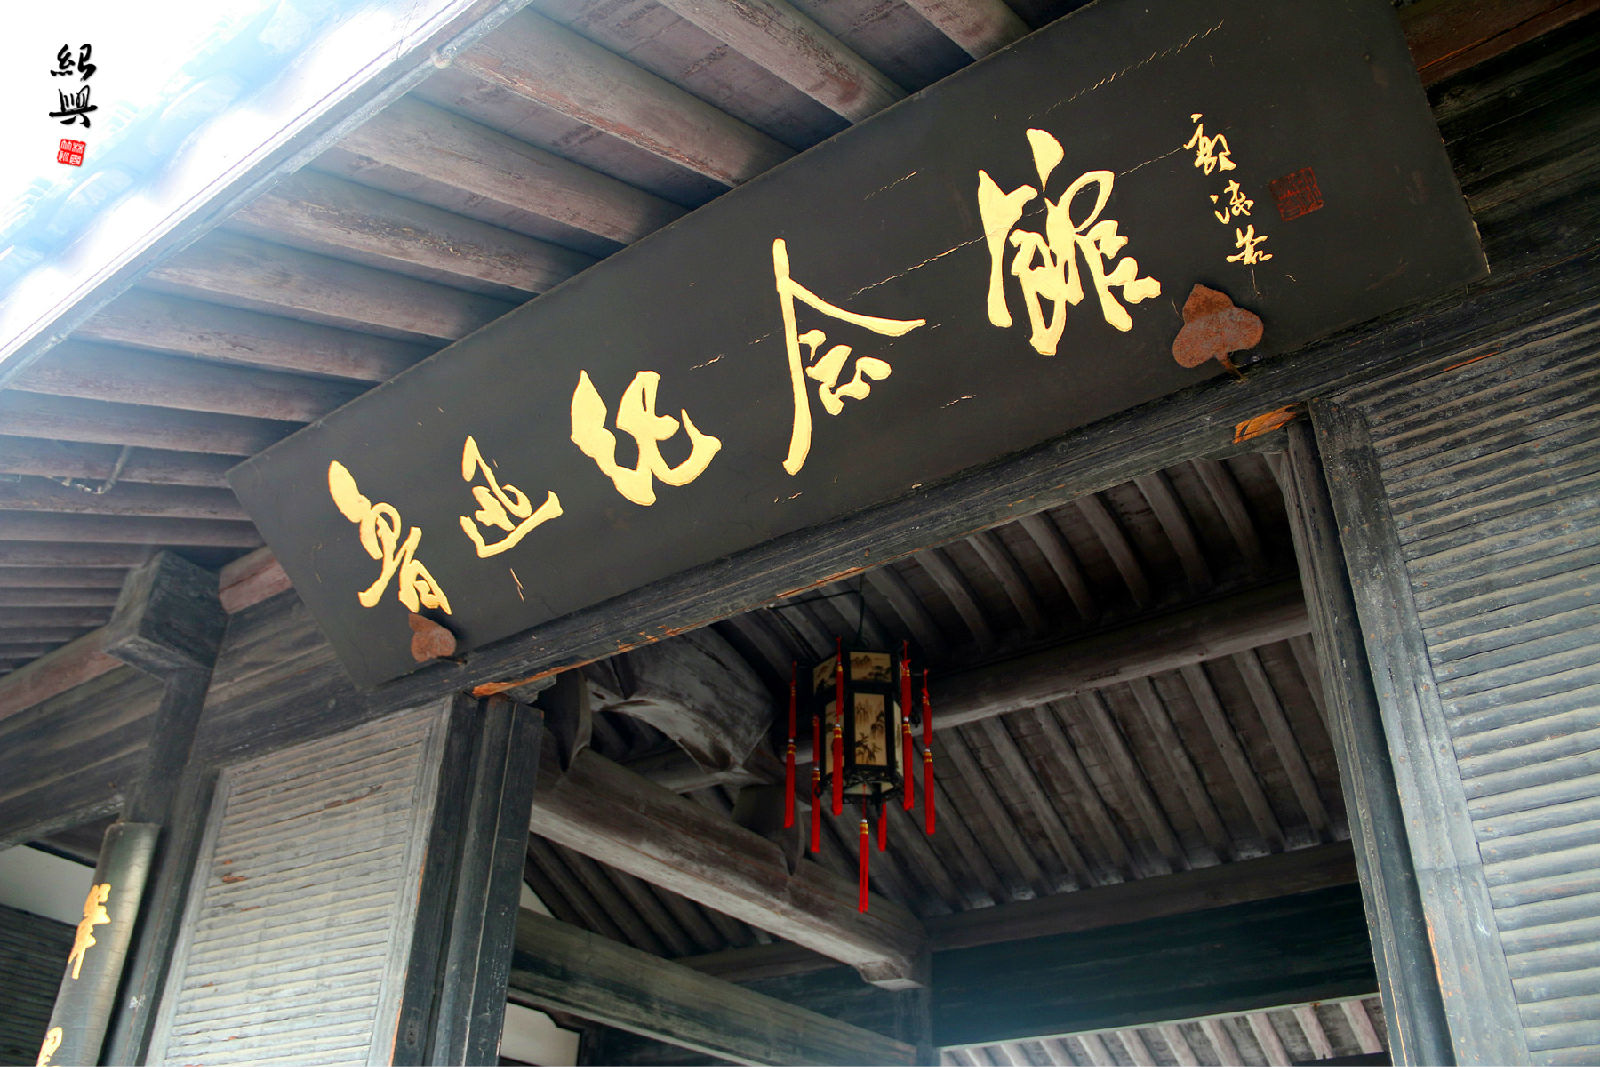 紹興
魯迅纪念館
郭沫若